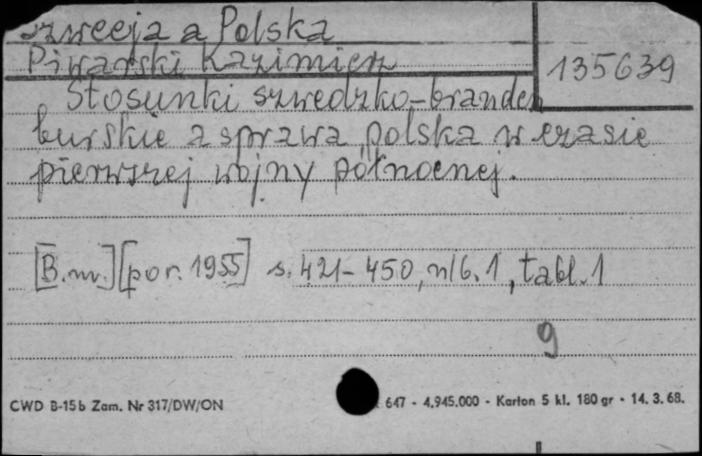 szwecja a Polska
Piwarski Kazimierz
135639
Stosunki szwedzko-branden
burskie a sprawa polska w czasie
pierwszej wojny północnej.
[B.m.] [por. 1955] s. 421-450, nlb. 1, tabl. 1
9
CWD B-15b Zam. Nr 317/DW/ON
647 - 4.945.000 - Karton 5 kl. 180 gr - 14. 3. 68.